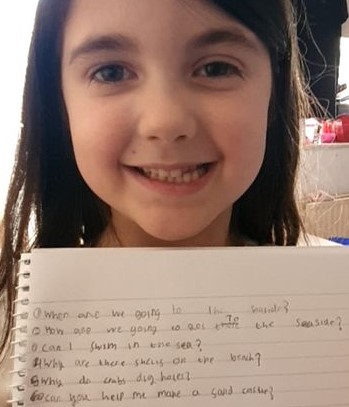 ① When are we going to the seaside?
② How are we going to get To the seaside?
③ Can I swim in the sea?
④ Why are there shells on the beach?
⑤ Why do crabs dig holes?
⑥ Can you help me make a sand castle?